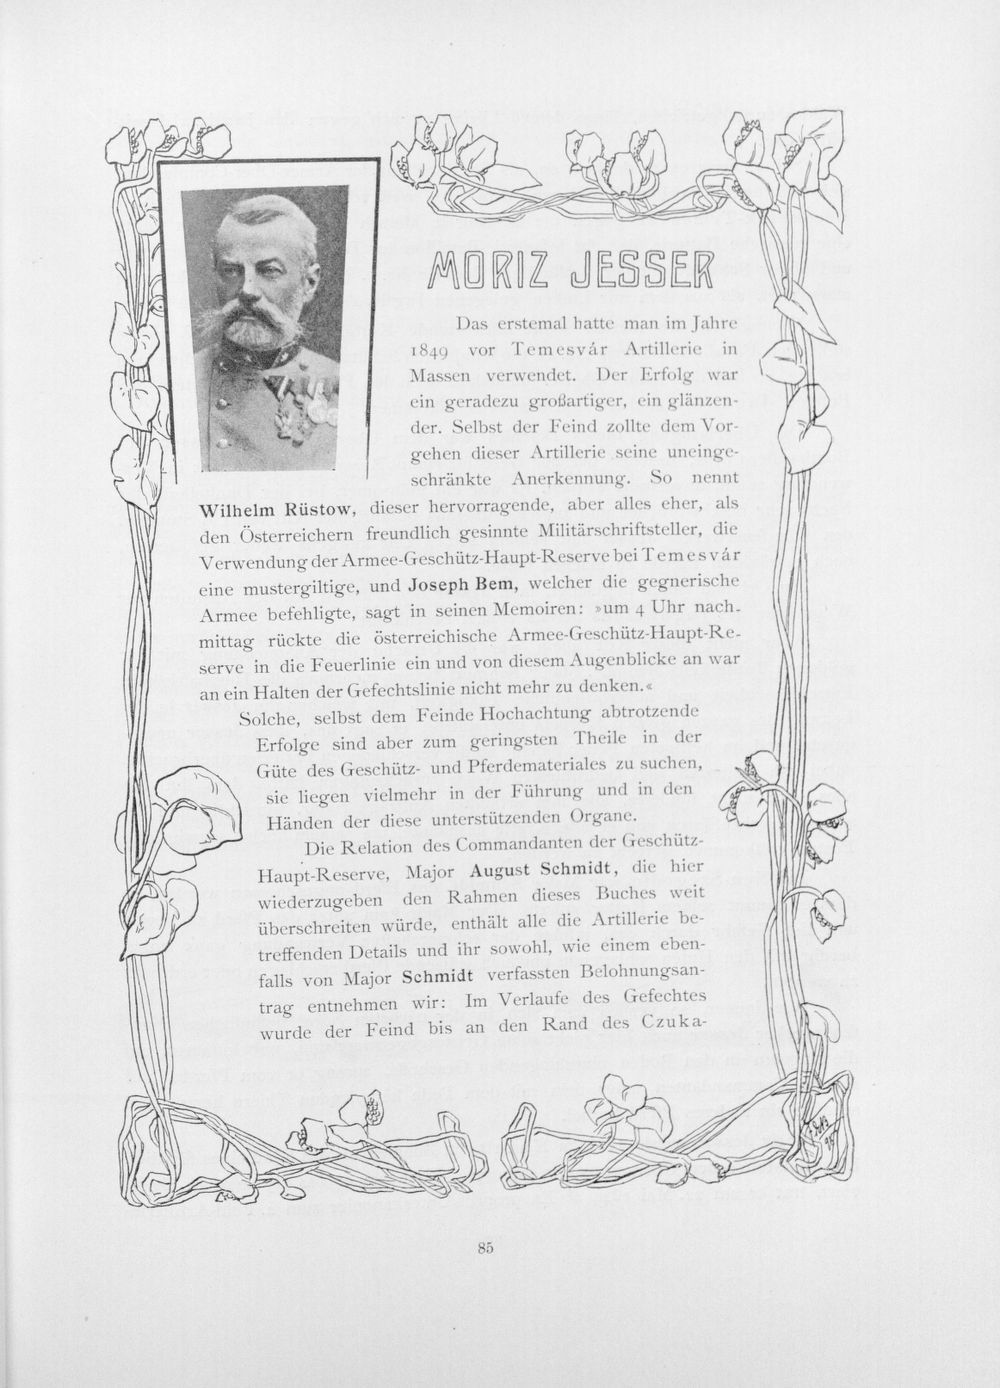 MORIZ JESSER
Das erstemal hatte man im Jahre
1849 vor Temesvár Artillerie in
Massen verwendet. Der Erfolg war
ein geradezu großartiger, ein glänzen-
der. Selbst der Feind zollte dem Vor-
gehen dieser Artillerie seine uneinge-
schränkte Anerkennung. So nennt
Wilhelm Rüstow, dieser hervorragende, aber alles eher, als
den Österreichern freundlich gesinnte Militärschriftsteller, die
Verwendung der Armee-Geschütz-Haupt-Reserve bei Temesvár
eine mustergiltige, und Joseph Bem, welcher die gegnerische
Armee befehligte, sagt in seinen Memoiren: »um 4 Uhr nach-
mittag rückte die österreichische Armee-Geschütz-Haupt-Re-
serve in die Feuerlinie ein und von diesem Augenblicke an war
an ein Halten der Gefechtslinie nicht mehr zu denken.«
Solche, selbst dem Feinde Hochachtung abtrotzende
Erfolge sind aber zum geringsten Theile in der
Güte des Geschütz- und Pferdemateriales zu suchen,
sie liegen vielmehr in der Führung und in den
Händen der diese unterstützenden Organe.
Die Relation des Commandanten der Geschütz-
Haupt-Reserve, Major August Schmidt, die hier
wiederzugeben den Rahmen dieses Buches weit
überschreiten würde, enthält alle die Artillerie be-
treffenden Details und ihr sowohl, wie einem eben-
falls von Major Schmidt verfassten Belohnungsan-
trag entnehmen wir: Im Verlaufe des Gefechtes
wurde der Feind bis an den Rand des Czuka-
85